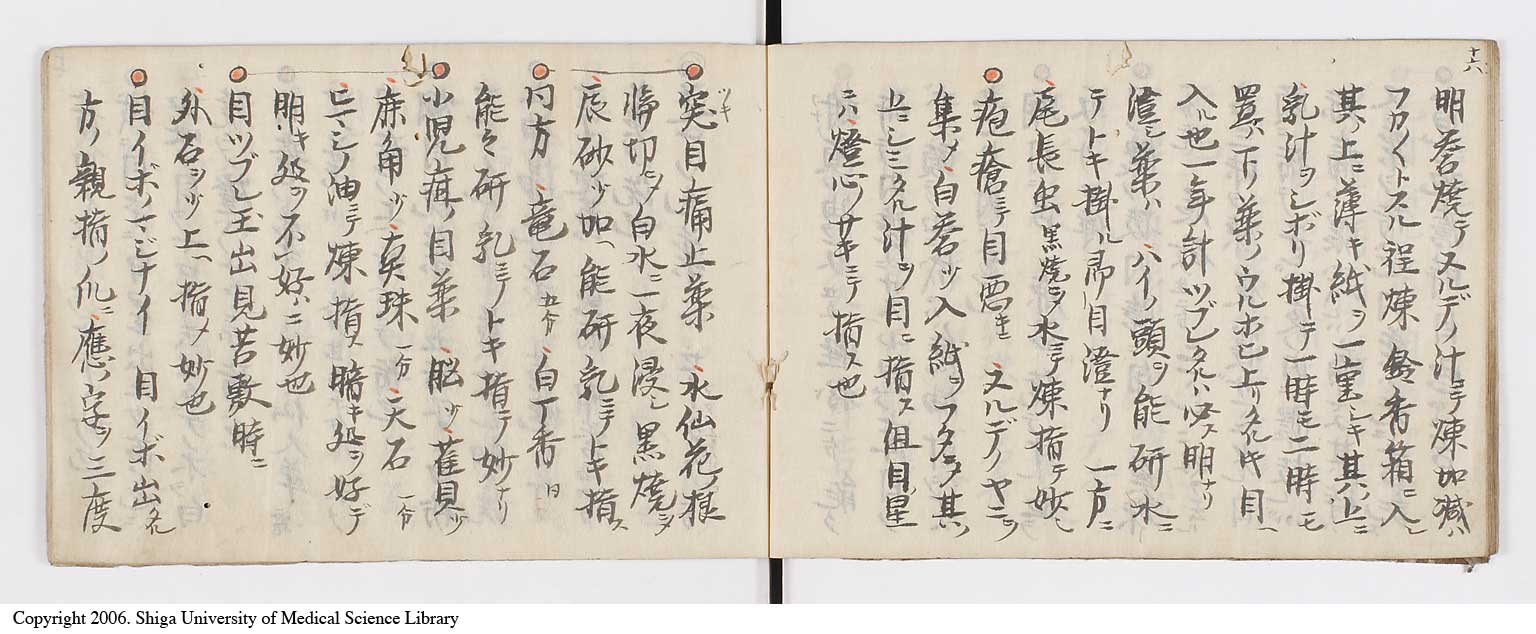 十六
明礬焼テヌルデノ汁ニテ煉加減ハ
フカ〱トスル程煉 香箱ニ入レ
其ノ上ニ薄キ紙ヲ一重シキ其ノ上ニ
乳汁ヲシボリ掛テ一時モ二時モ
置ハ下リ薬ノウルホヒ上リタル時目ヘ
入ル也一年計ツブレタルハ必ス明ナリ
澄シ薬ハ ハイノ頭ヲ能研水ニ
テトキ掛ル即目澄ナリ 一方ニ
尾長虫黒焼ニメ水ニテ煉指テ妙シ
疱瘡ニテ目悪キニ ヌルデノヤニヲ
集メ白礬ヲ入紙ヲフタニメ其ノ
上ニシミタル汁ヲ目ニ指ス但目星
ニハ燈心ノサキニテ指ス也
突目痛止薬 水仙花ノ根
ツキ
時切ニメ白水ニ一夜浸シ黒焼ニメ
辰砂ヲ加ヘ能研乳ニテトキ指ス
同方 竜石五分 白丁香同
能々研乳ニテトキ指テ妙ナリ
小児疳ノ目薬 脳ヲ 雀貝ヲ
麻角ヲ 真珠一分 大石一分
ニテ煉指ス暗キ処ヲ好デ
明キ処ヲ不好ハニ妙也
目ツブレ玉出見苦敷時ニ
外石ヲヅ上ヘ指メ妙也
目イボノマジナイ 目イボ出タル
方ノ親指ノ爪ニ應ノ字ヲ三度
Copyright 2006. Shiga University of Medical Science Library